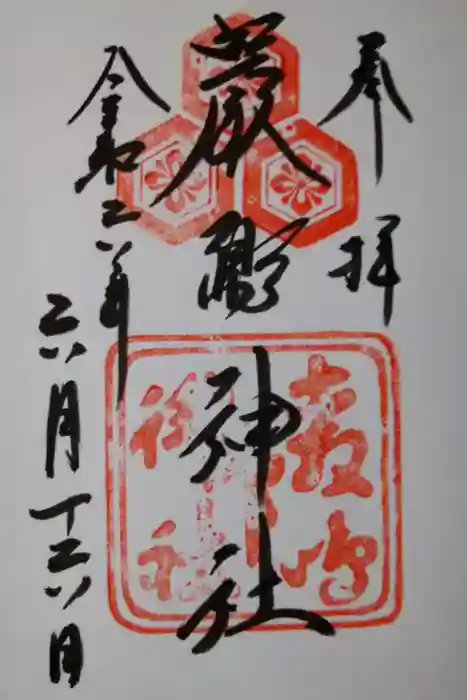 奉拝
厳島神社
令和六年
六月十六日
嚴島
神社